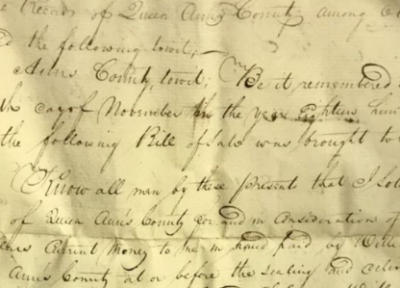 e Records of Queen Ann's County among
d the following towit;
Ann's County, towit; Be it remembered
th day of November in the year Eighteen hun
the following Bill of Sale was brought to
Know all men by these presents that I
of Queen Ann's County for and in consideration of
current money to me in hand paid by
Anns County at or before the sealing and